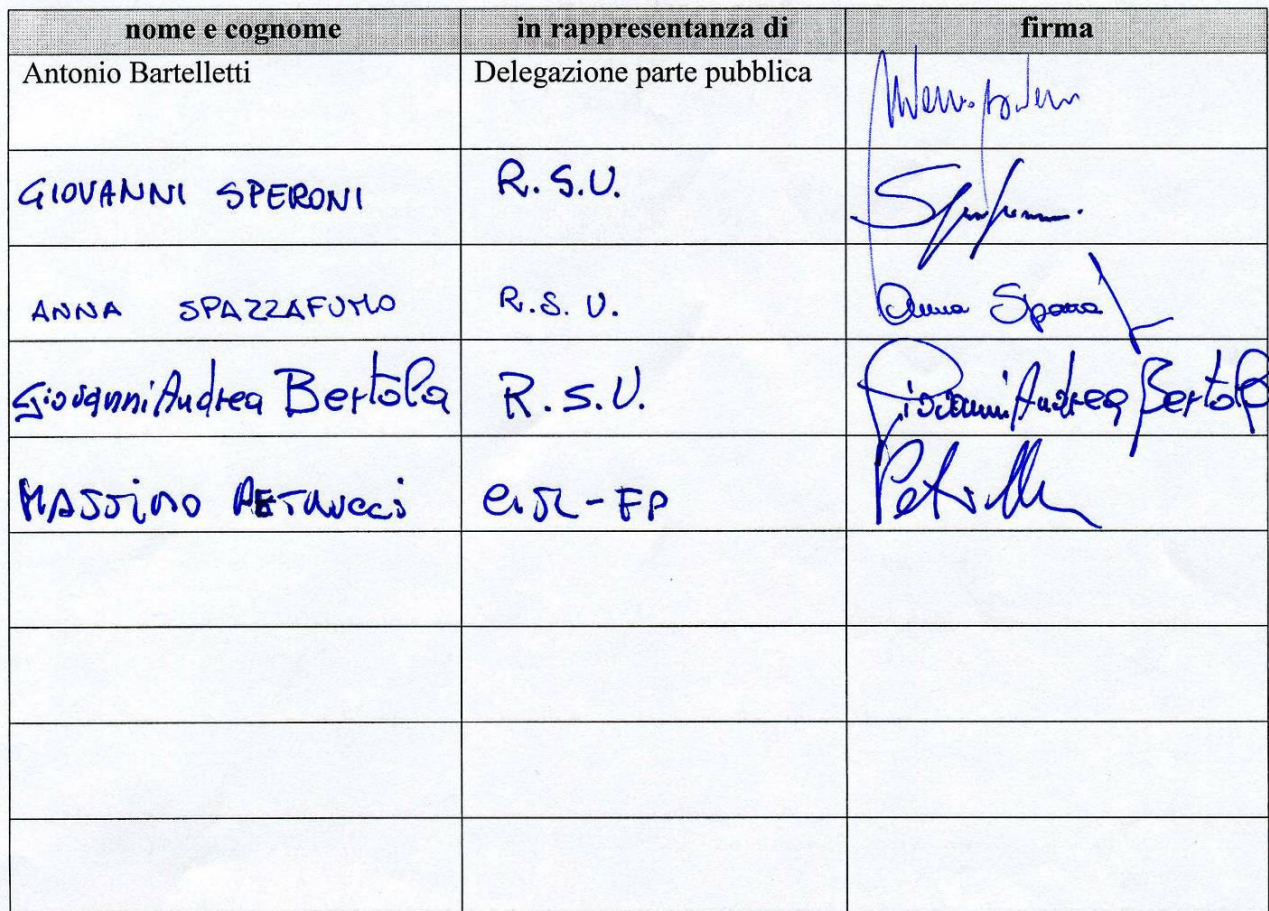 nome e cognome in rappresentanza di firma
Antonio Bartelletti Delegazione parte pubblica
GIOVANNI SPERONI R.S.U.
ANNA SPAZZAFUMO R.S.U. Anna Spazza
Giovanni Andrea Bertola R.S.U. Giovanni Andrea Bertola
MASSIMO PETRUCCI CISL-FP